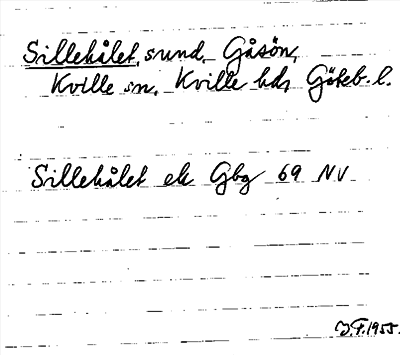 Sillehålet, sund, Gåsön,
Kville sn, Kville hd, Göteb. l.
Sillehålet ek Gbg 69 NV
J.F. 1955.